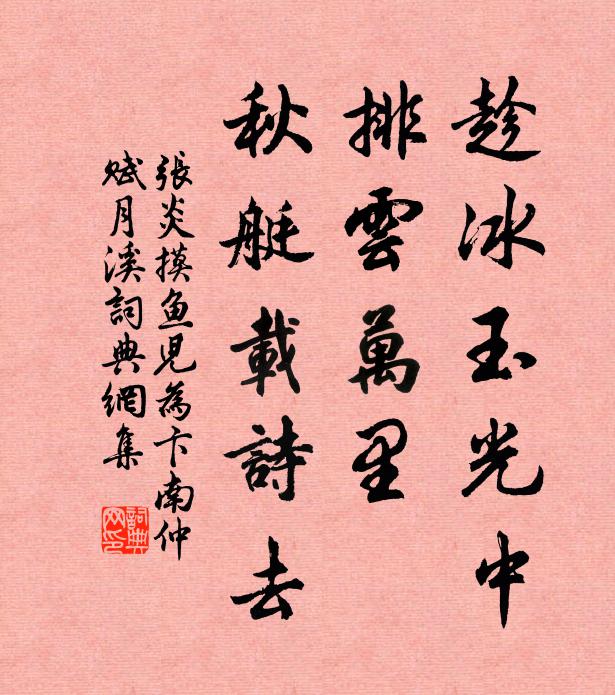 趁冰玉光中
排雲萬里
秋艇載詩去
張炎摸魚兒為卞南仲
賦月溪詞典網集
詞典
网印